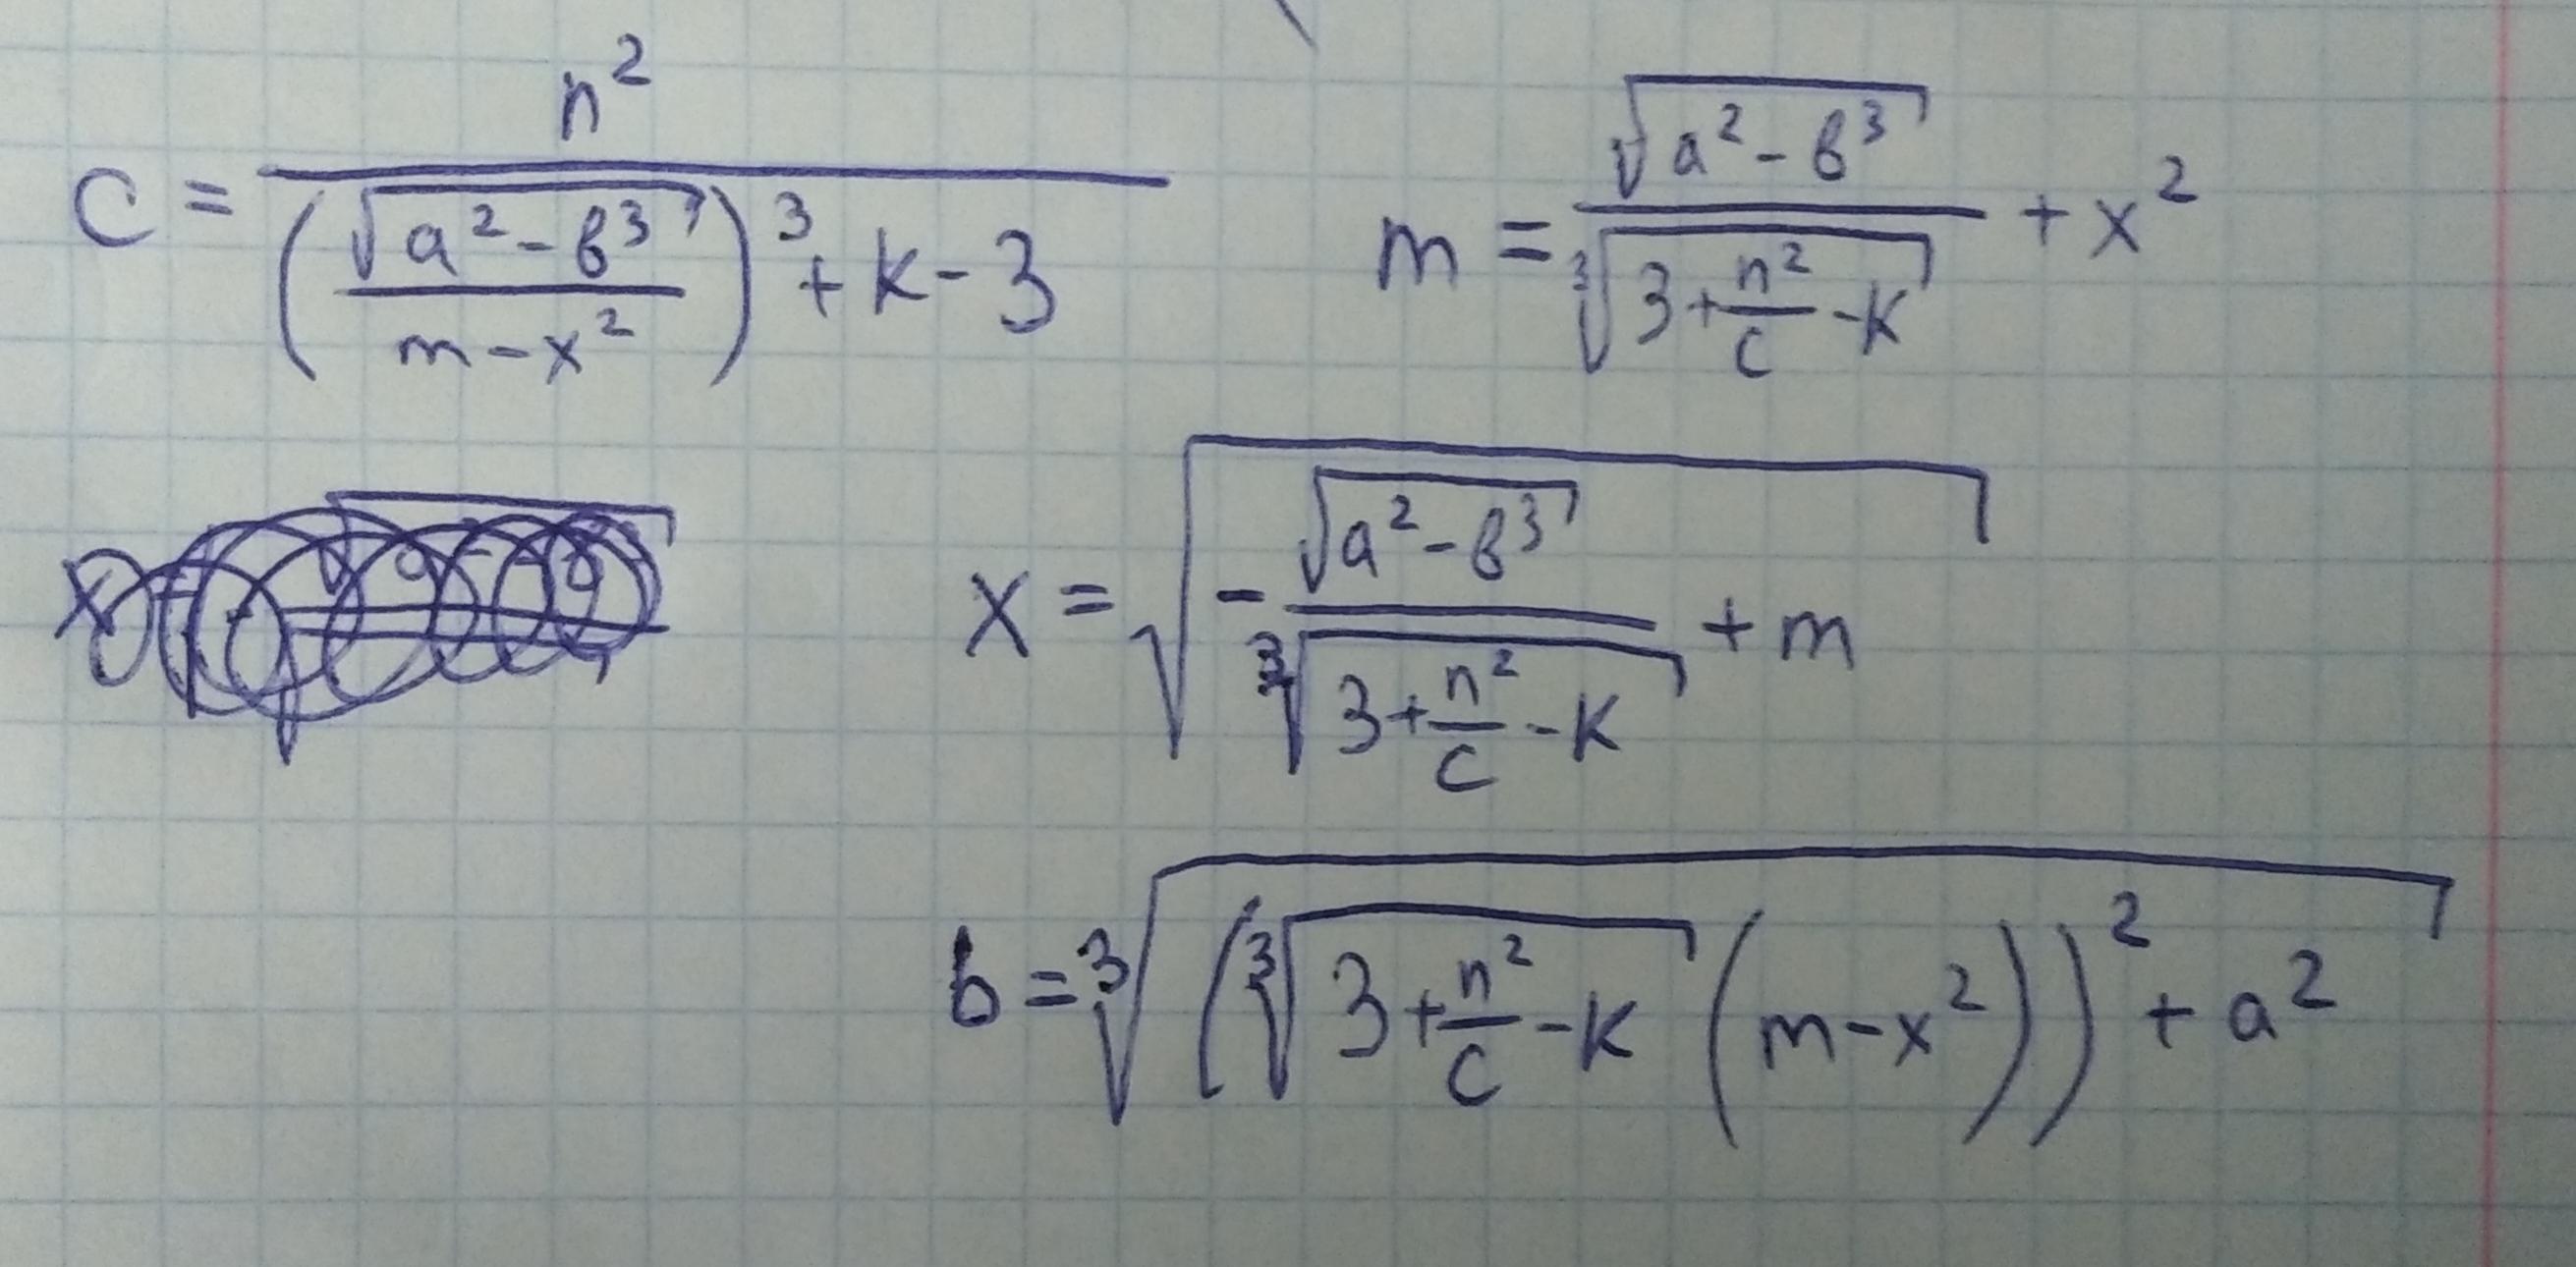 c = n² / ((√(a² - b³) / (m - x²))³ + k - 3)
m = √(a² - b³) / ∛(3 + n²/c - k) + x²
x = √(-√(a² - b³) / ∛(3 + n²/c - k) + m)
b = ∛((∛(3 + n²/c - k) (m - x²))² + a²)